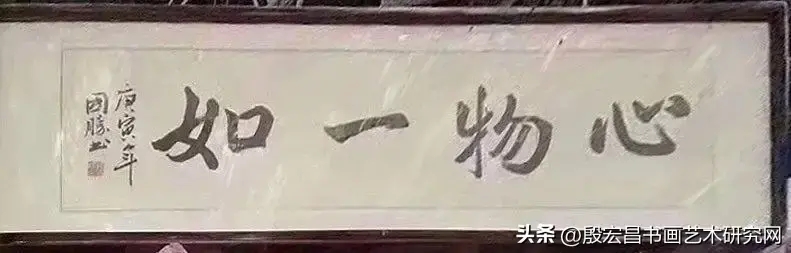 心物一如
庚寅年
国勝书
头条 @殷宏昌书画艺术研究网